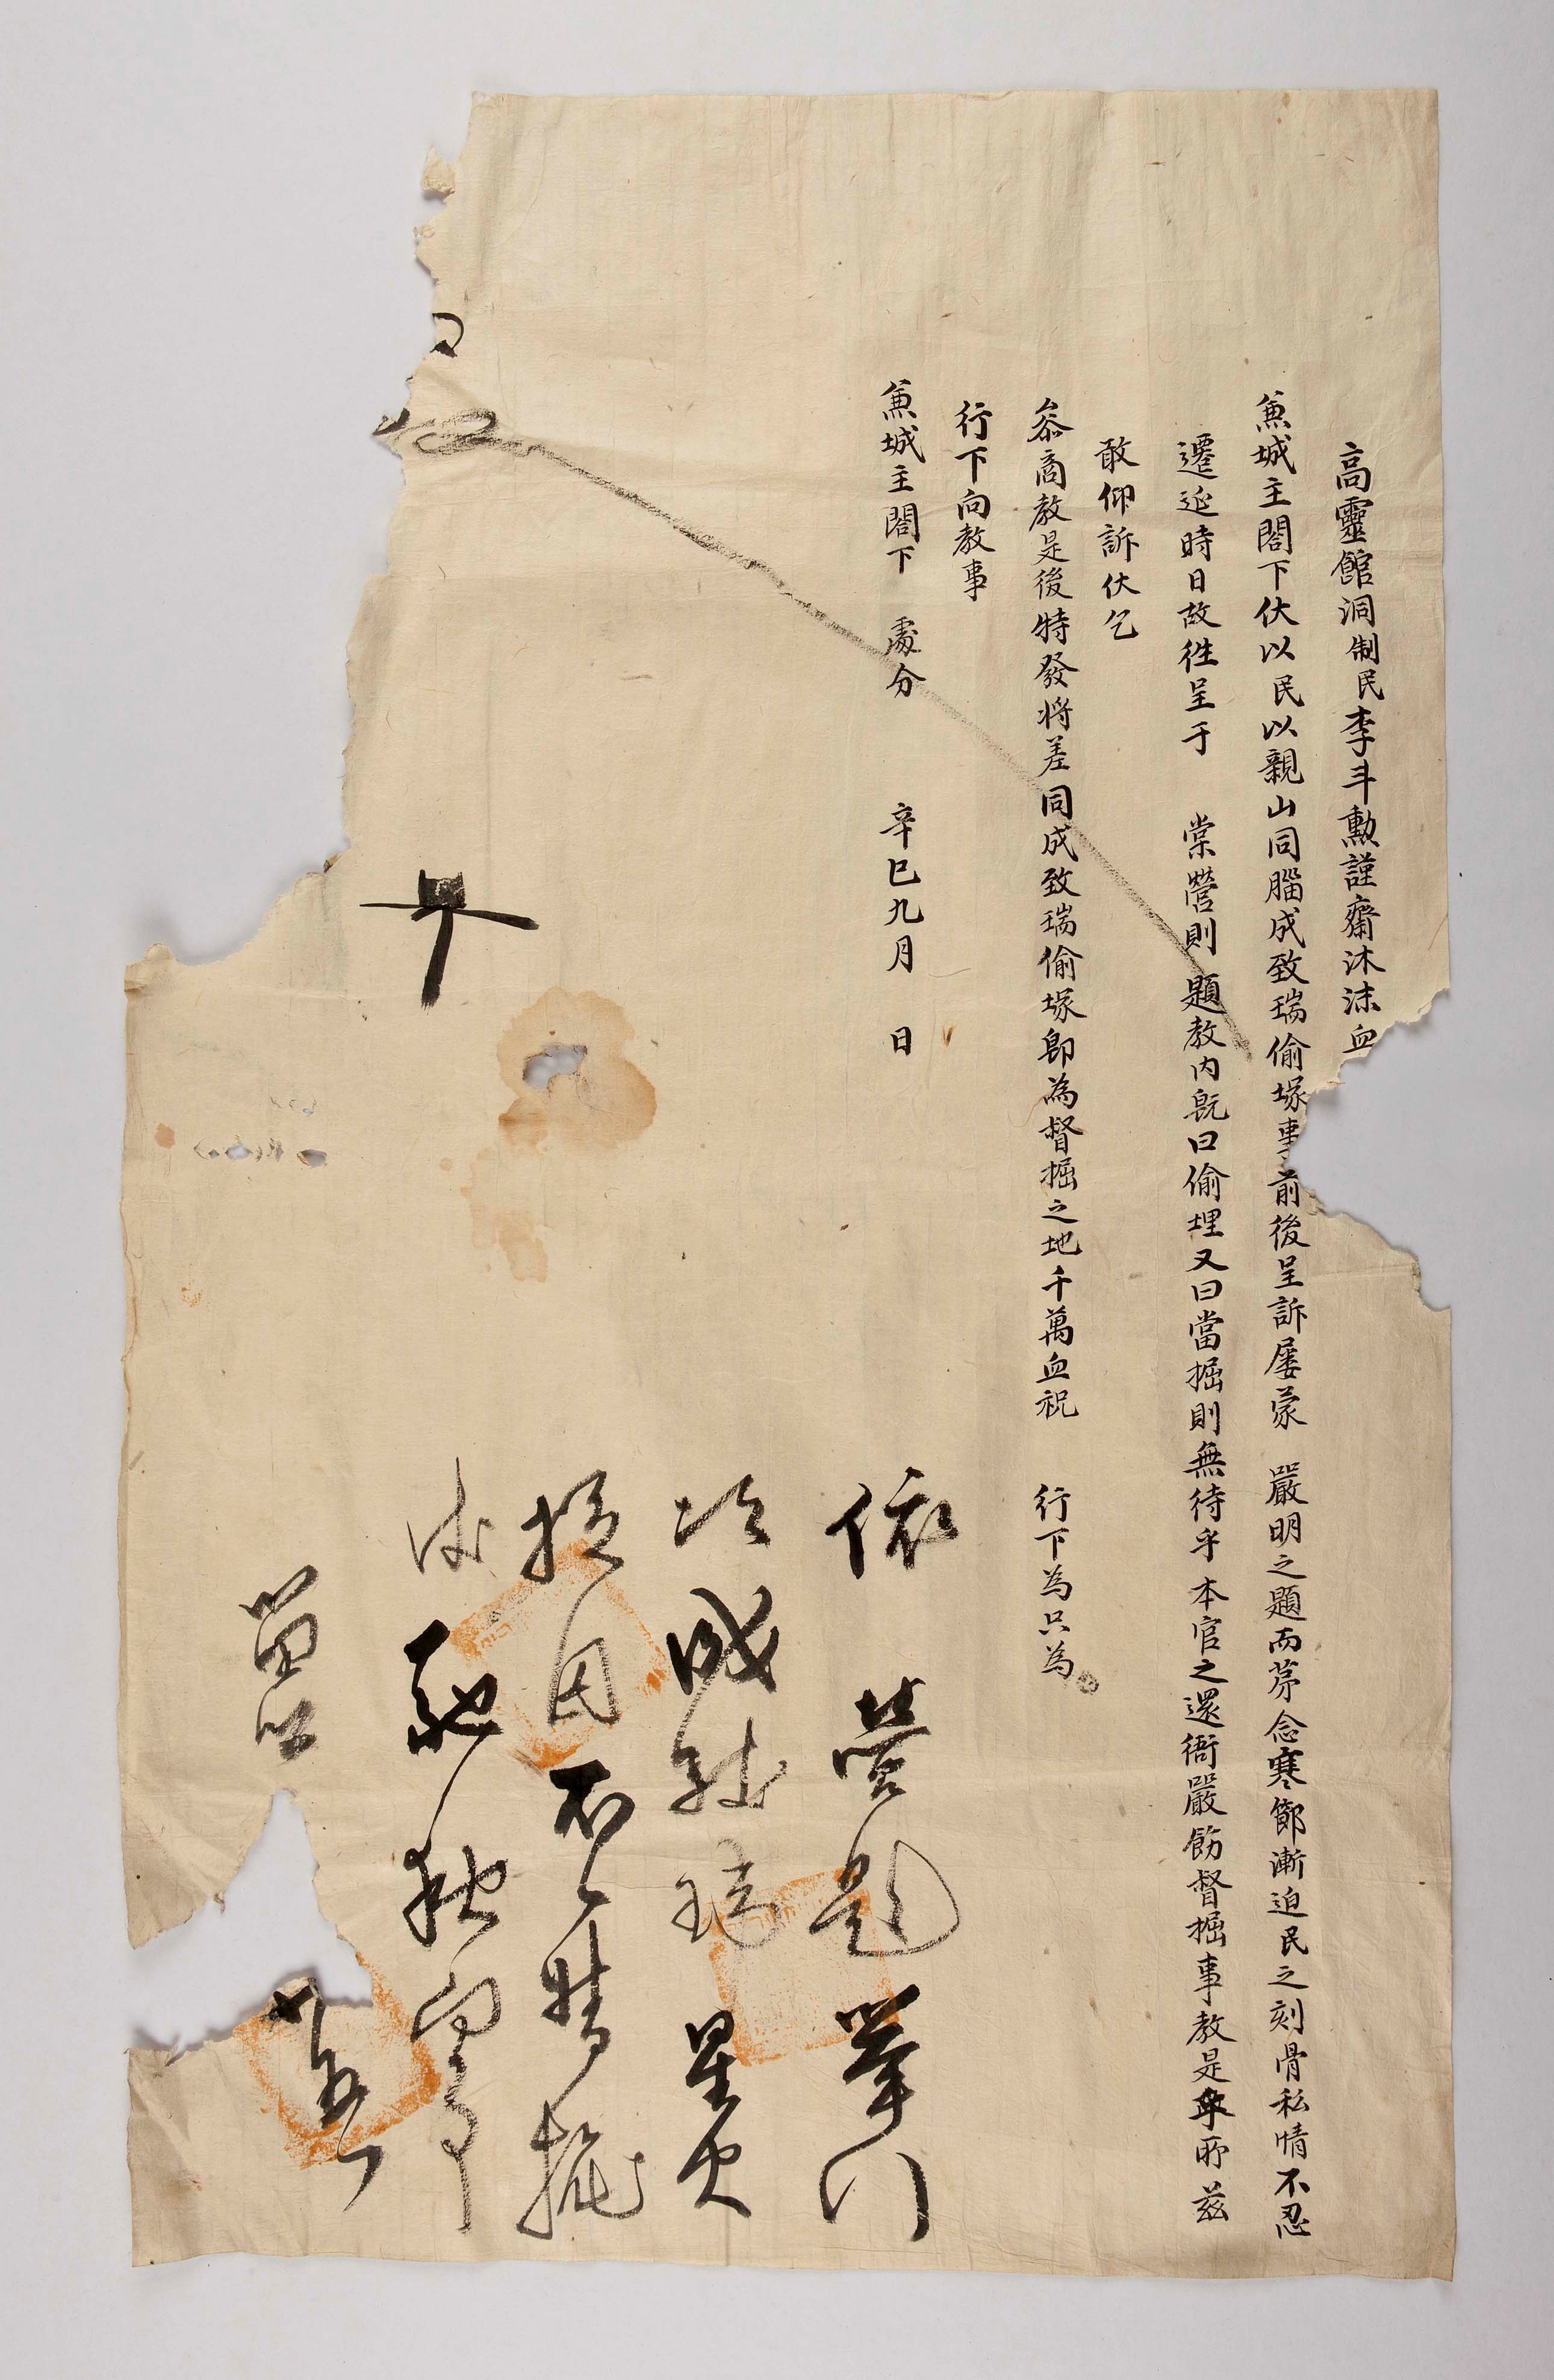 高靈館洞制民李斗勳謹齋沐沫血
兼城主閤下伏以民以親山同腦成致瑞偷塚事前後呈訴屢蒙 嚴明之題而第念寒節漸迫民之刻骨私情不忍
遷延時日故徃呈于 棠營則 題教内旣曰偷埋又曰當掘則無待乎 本官之還衙嚴飭督掘事教是乎所玆
敢仰訴伏乞
叅商教是後特發將差同成致瑞偷塚卽為督掘之地千萬血祝 行下為只為
行下向教事
兼城主閤下 處分 辛巳九月 日
依 營題擧行
次成致瑞星火
捉囚不日督掘
馳報宜事